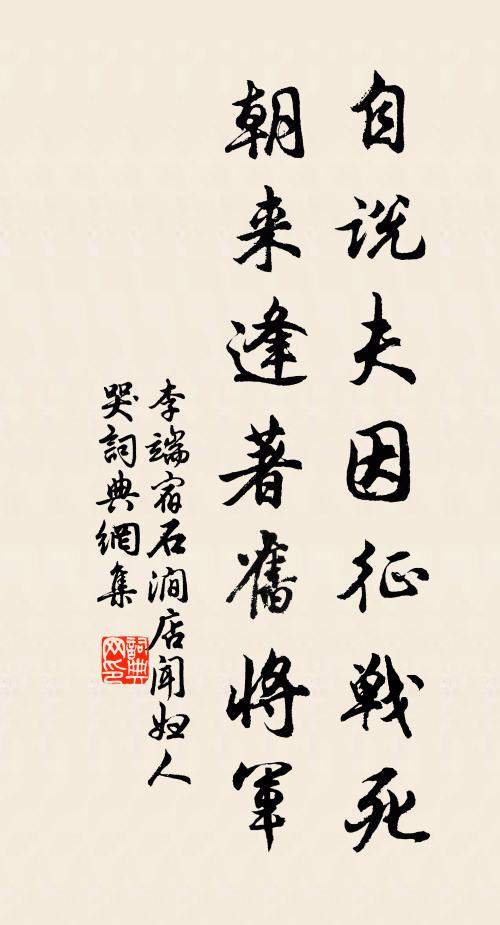 自说夫因征戰死
朝来逢著舊將軍
李端宿石澗店闻妇人
哭詞典網集
詞典
网印